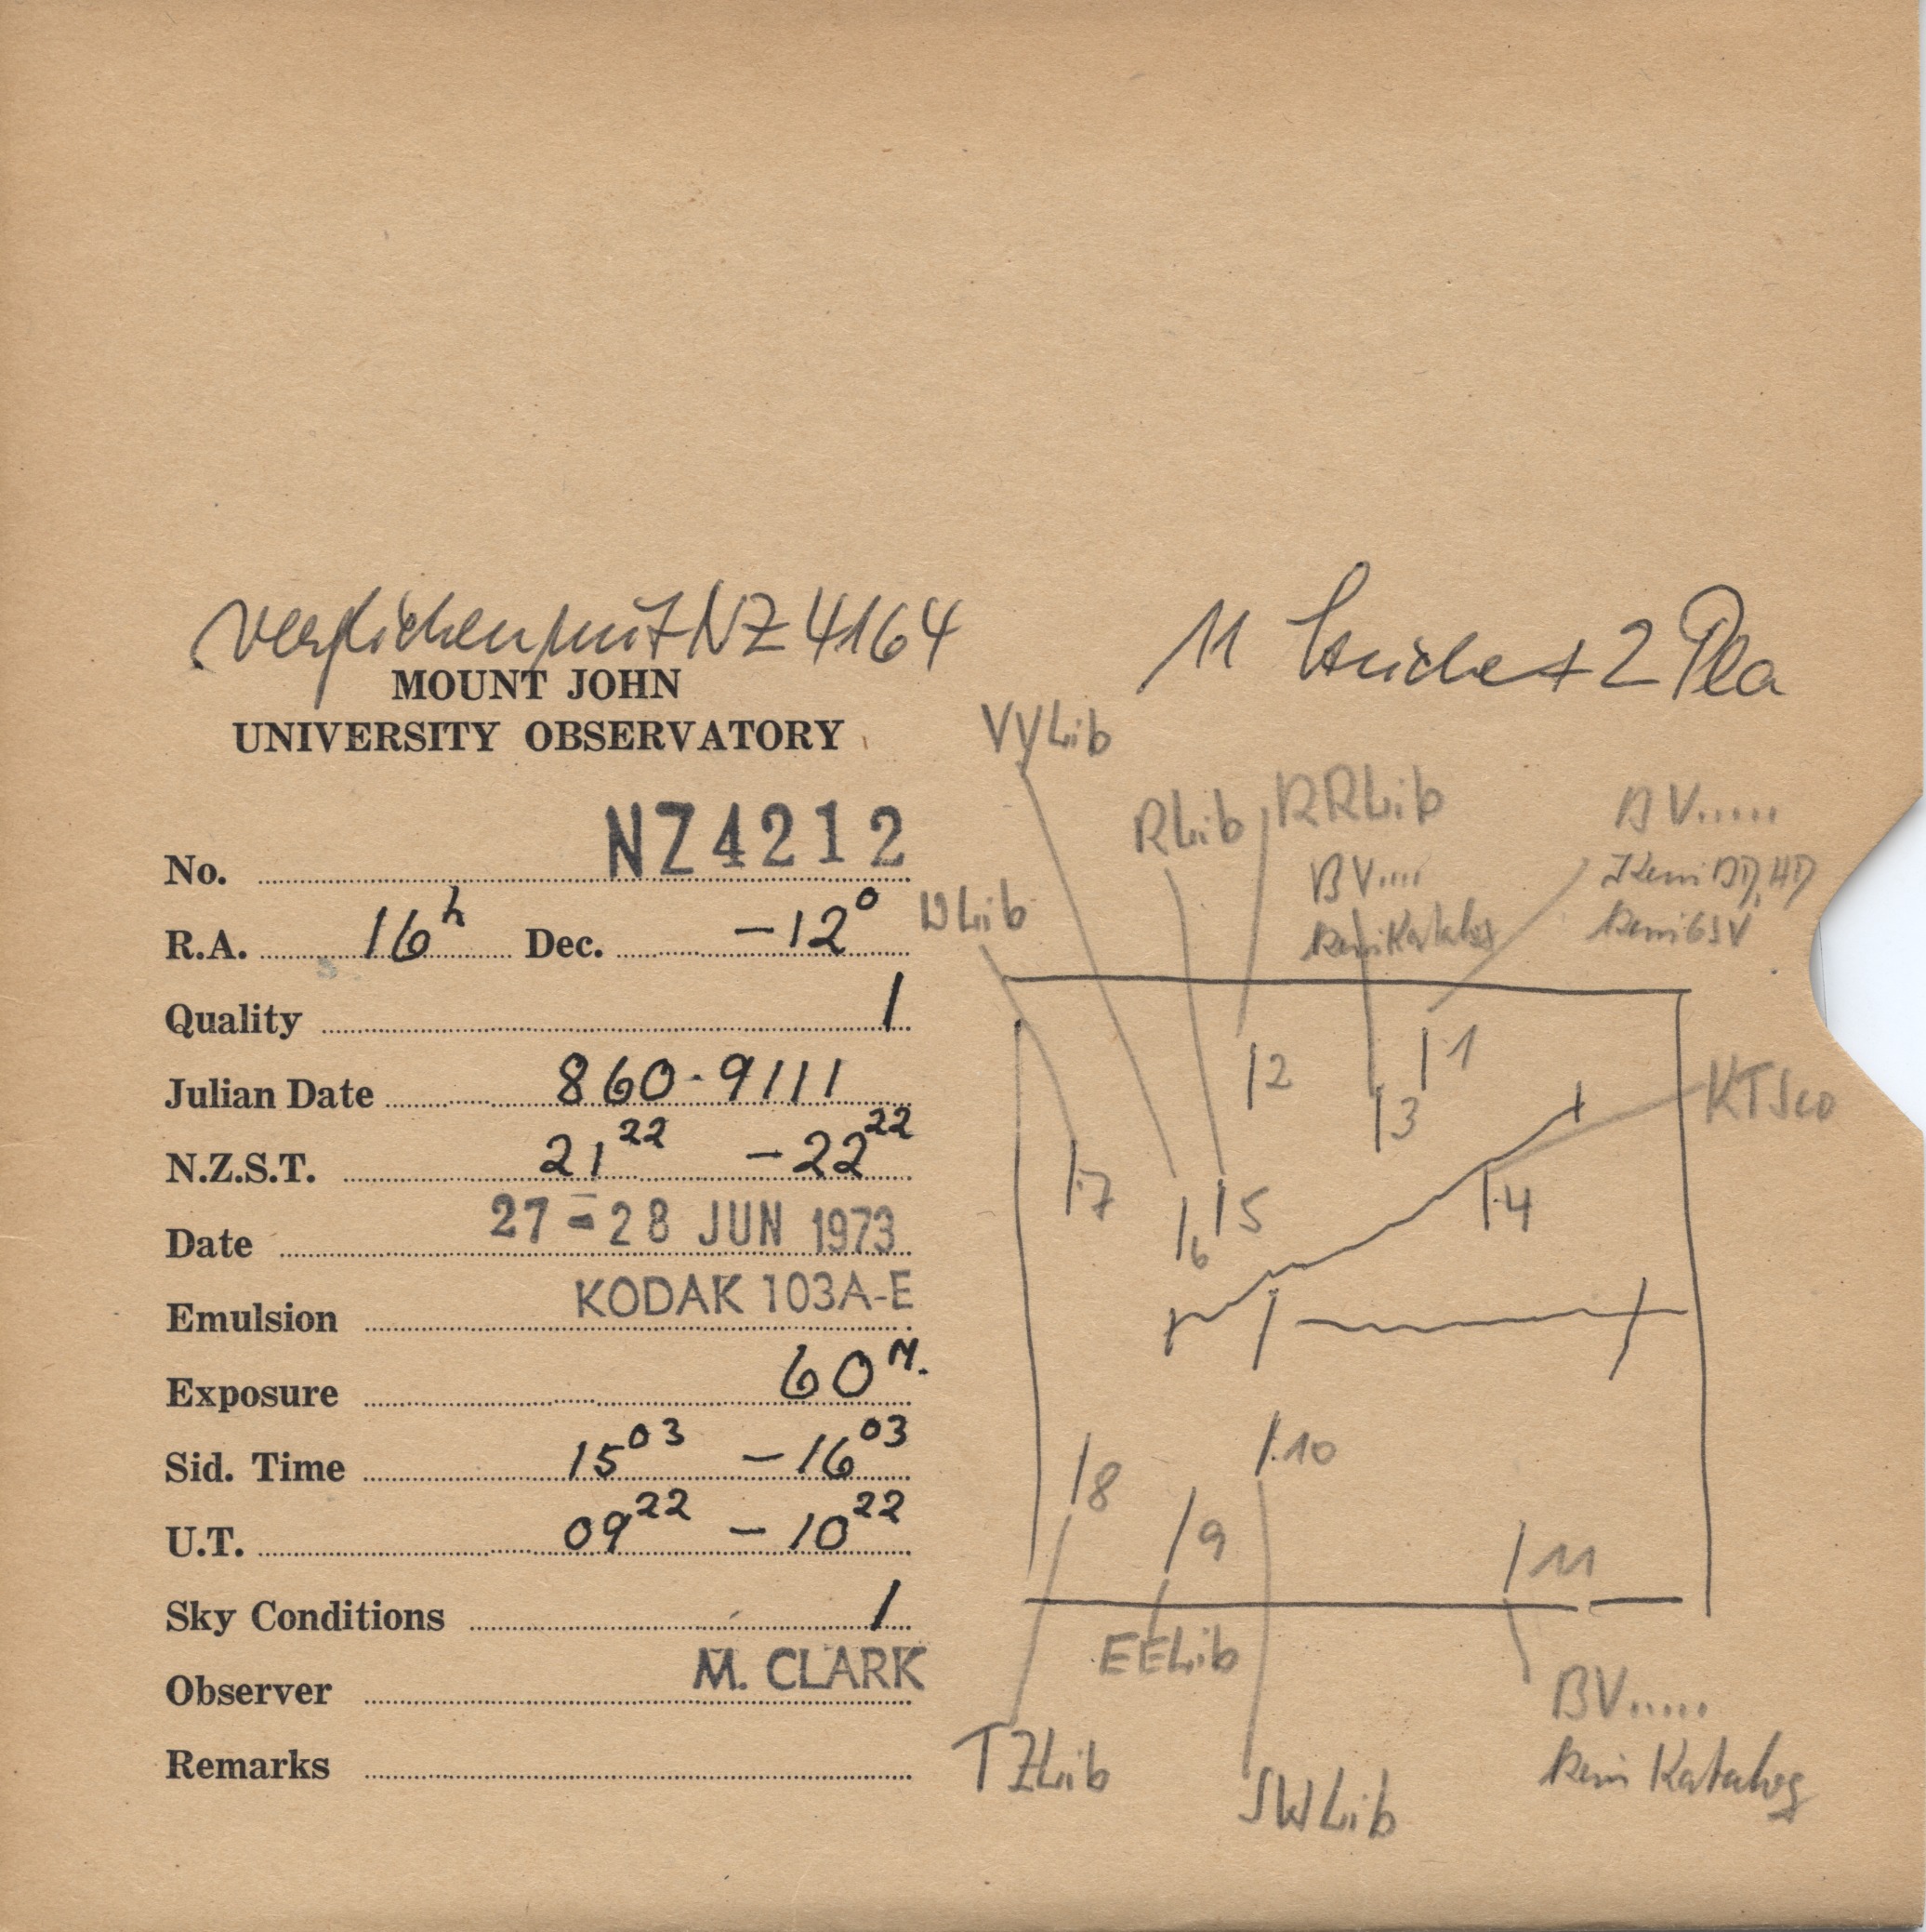 verglichen mit NZ 4164
11 Striche + 2 Pla
MOUNT JOHN
UNIVERSITY OBSERVATORY
No. NZ4212
R.A. 16h Dec. -12°
Quality 1
Julian Date 860.9111
N.Z.S.T. 21 22 - 22 22
Date 27-28 JUN 1973
Emulsion KODAK 103A-E
Exposure 60 M.
Sid. Time 15 03 - 16 03
U.T. 09 22 - 10 22
Sky Conditions 1
Observer M. CLARK
Remarks
VY Lib
R Lib
RR Lib
BV....
kein Katalog
BV.....
kein BD, HD
kein GSV
Lib
12
1
13
KT Sco
7
6
15
14
8
9
10
11
EE Lib
TZ Lib
SW Lib
BV.....
kein Katalog